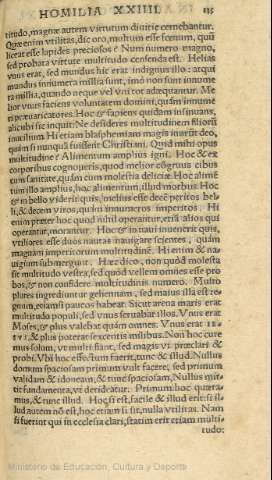 HOMILIA XXIIII 115
titudo, magnæ autem virtutum diuitiæ cernebantur.
Quæ enim vtilitas, dic oro, multum esse fœnum, quũ
liceat esse lapides preciosos? Numero magno,
sed probata virtute multitudo censenda est. Helias
vnus erat, sed mundus hic erat indignus illo: atqui
mundus innumera millia sunt, imò non sunt innume
ra millia, quando neque vel vni tot adæquantur. Me
lior vnus faciens voluntatem domini, quàm innume
ri præuaricatores. Hoc & sapiens quidam insinuans,
alicubi sic inquit: Ne desideres multitudinem filiorũ
inutilium. Hi etiam blasphemiam magis inurũt deo,
quàm si nunquã fuissent Christiani. Quid mihi opus
multitudine? Alimentum amplius igni. Hoc & ex
corporibus cognoueris, quod melior cõgruus cibus
cum sanitate, quàm cum molestia deliciæ. Hoc alimẽ
tum illo amplius, hoc alimentum, illud morbus. Hoc
& in bello videri quis, melius esse decẽ peritos bel
li, & decem viros, quàm innumeros imperitos. Hi
enim præter hoc quod nihil operantur, etiã alios qui
operantur, morantur. Hoc & in naui inuenerit quis,
vtiliores esse duos nautas nauigare scientes, quàm
magnam imperitorum multitudinẽ. Hi enim & na-
uigium submergunt. Hæc dico, non quòd molesta
sit multitudo vestra, sed quòd vellem omnes esse pro
bos, & non confidere multitudinis numero. Multo
plures ingrediuntur gehennam, sed maius illa est re-
gnum, etiamsi paucos habeat. Sicut arena maris erat
multitudo populi, sed vnus seruabat illos. Vnus erat
Moses, & plus valebat quàm omnes. Vnus erat
&amp; plus poterat sexcentis milibus. Non hoc cure
mus solum, vt multi fiant, sed magis vt præclari &
probi. Vbi hoc effectum fuerit, tunc & illud. Nullus
domum spaciosam primum vult facere, sed primum
validam & idoneam, & tunc spaciosam. Nullus mit-
tit fundamenta, vt derideatur. Primum hoc quæra-
mus, & tunc illud. Hoc si est, facile & illud erit: si il-
lud autem nõ est, hoc etiam si sit, nulla vtilitas. Nam
si fuerint qui in ecclesia clari, statim erit etiam multi-
tudo:
Ministerio de Educación, Cultura y Deporte